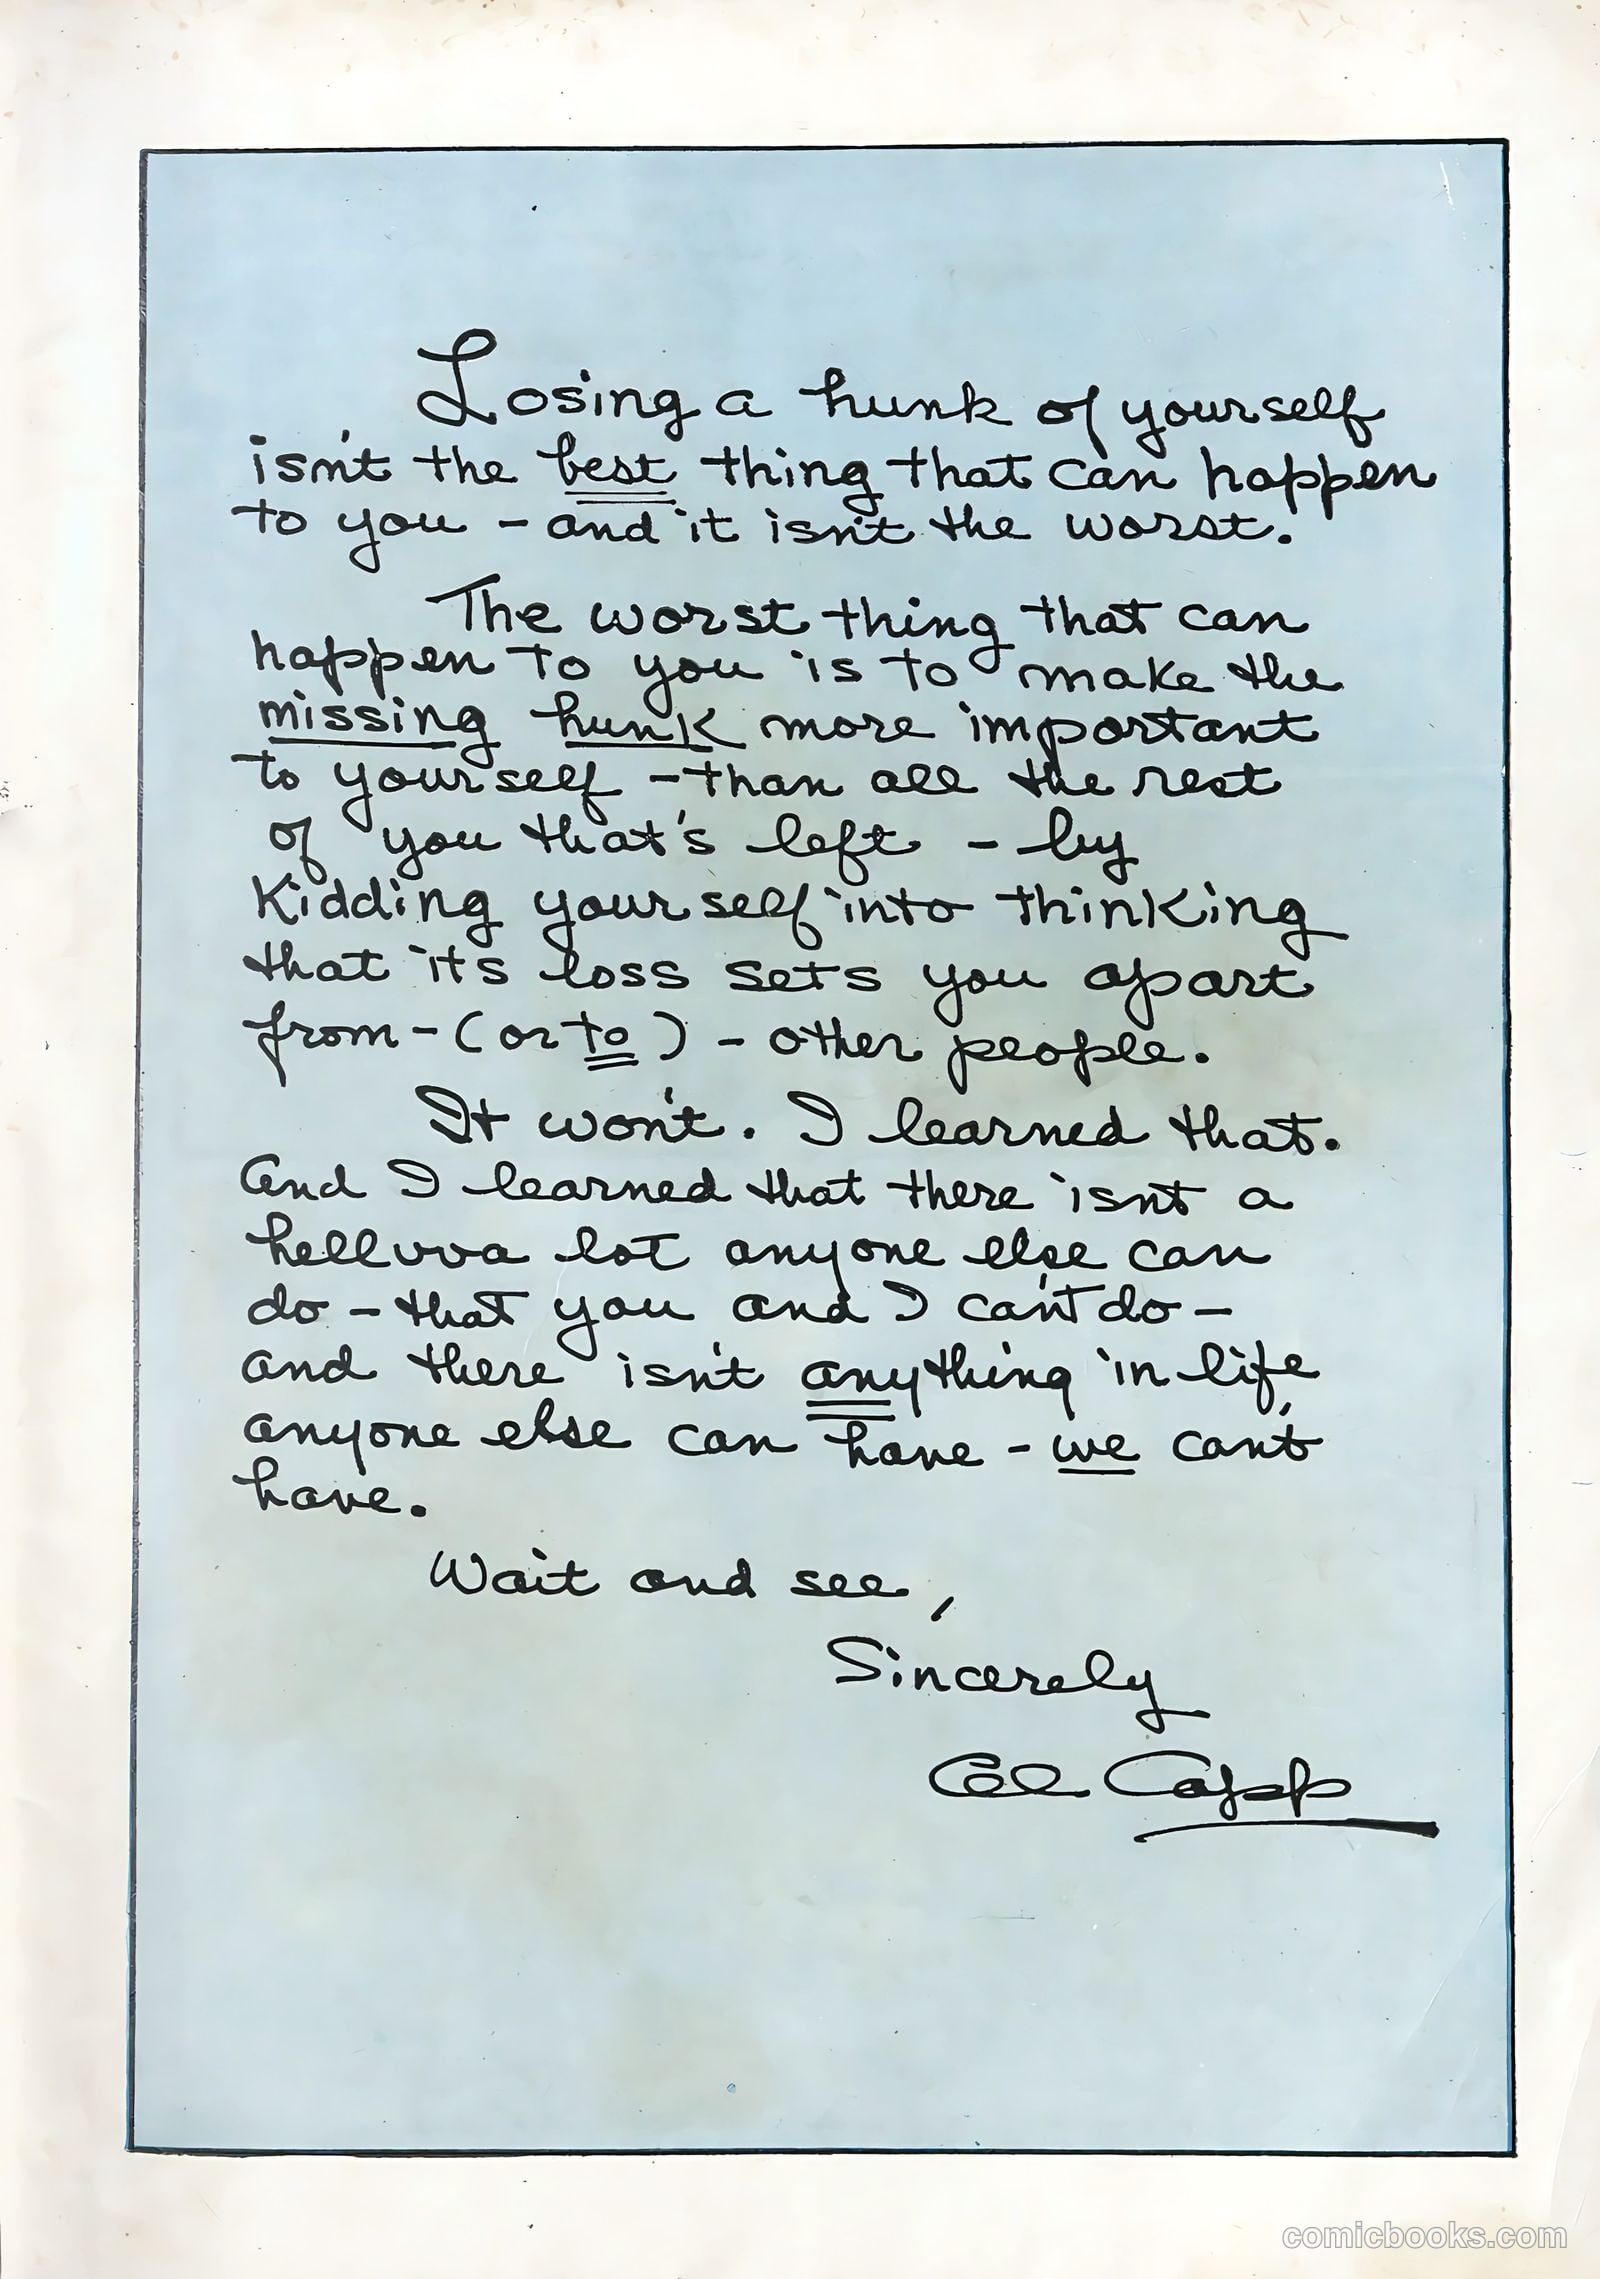 Losing a hunk of yourself
isn't the best thing that can happen
to you - and it isn't the worst.
The worst thing that can
happen to you is to make the
missing hunk more important
to yourself - than all the rest
of you that's left - by
kidding yourself into thinking
that its loss sets you apart
from - (or to) - other people.
It won't. I learned that.
And I learned that there isnt a
helluva lot anyone else can
do - that you and I can't do -
and there isn't anything in life
anyone else can have - we can't
have.
Wait and see,
Sincerely
Al Capp
comicbooks.com